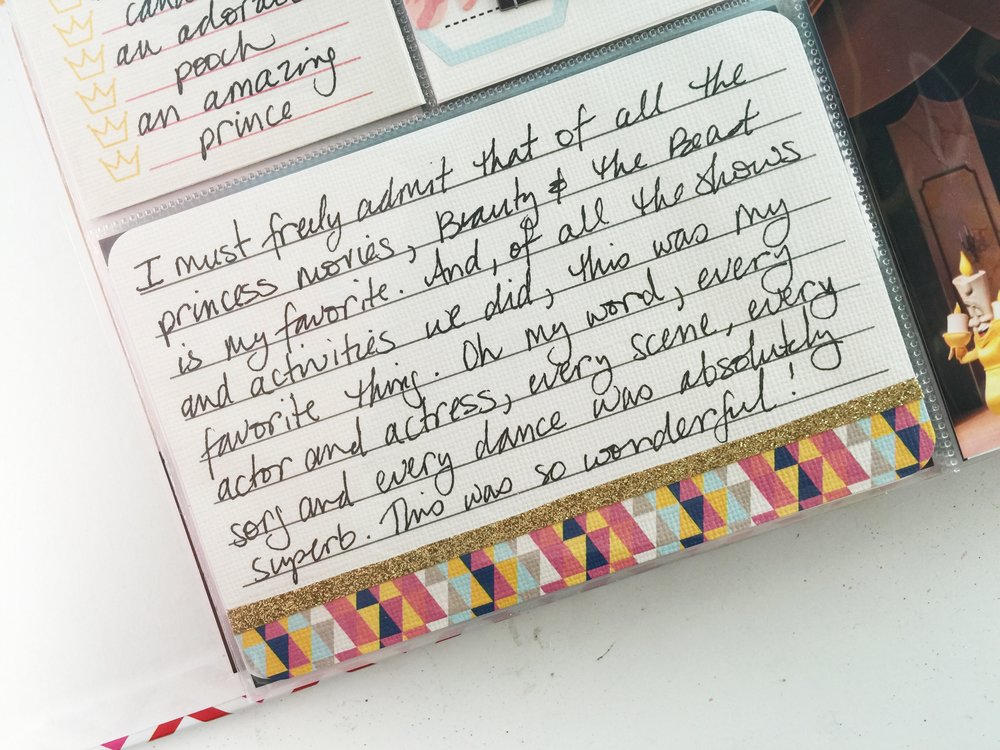 an adorable
pooch
an amazing
prince
I must freely admit that of all the
princess movies, Beauty & the Beast
is my favorite. And, of all the shows
and activities we did, this was my
favorite thing. Oh my word, every
actor and actress, every scene, every
song and every dance was absolutely
superb. This was so wonderful!